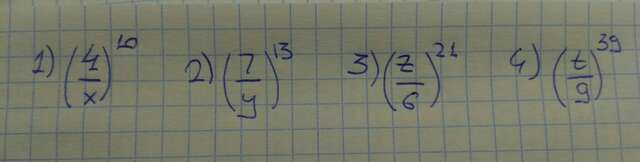 1) (4/x)^10 2) (7/y)^13 3) (z/6)^21 4) (t/9)^39